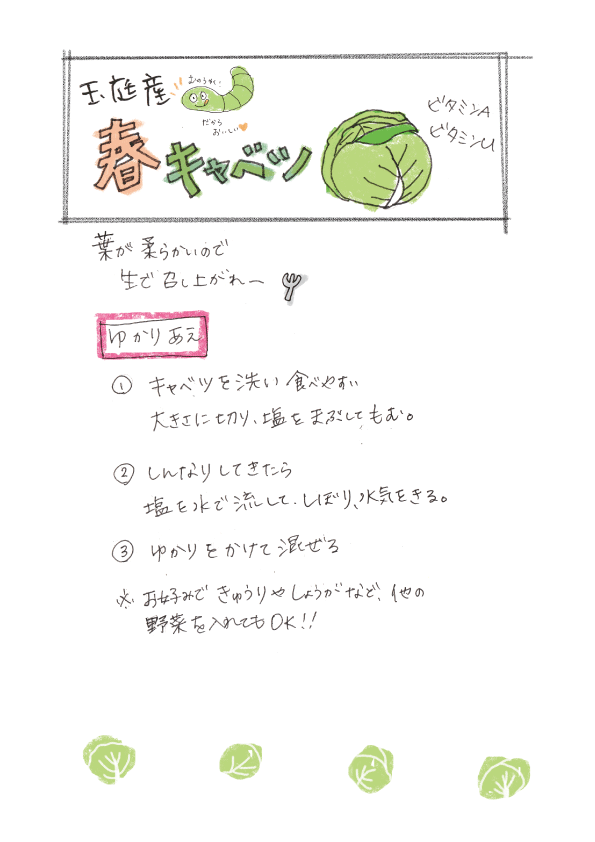 玉庭産
むのうやく
だから
おいしい
春キャベツ
ビタミンA
ビタミンU
葉が柔らかいので
生で召し上がれー
ゆかりあえ
① キャベツを洗い食べやすい
大きさに切り、塩をまぶしてもむ。
② しんなりしてきたら
塩を水で流して、しぼり、水気をきる。
③ ゆかりをかけて混ぜる
※ お好みできゅうりやしょうがなど、他の
野菜を入れてもOK!!